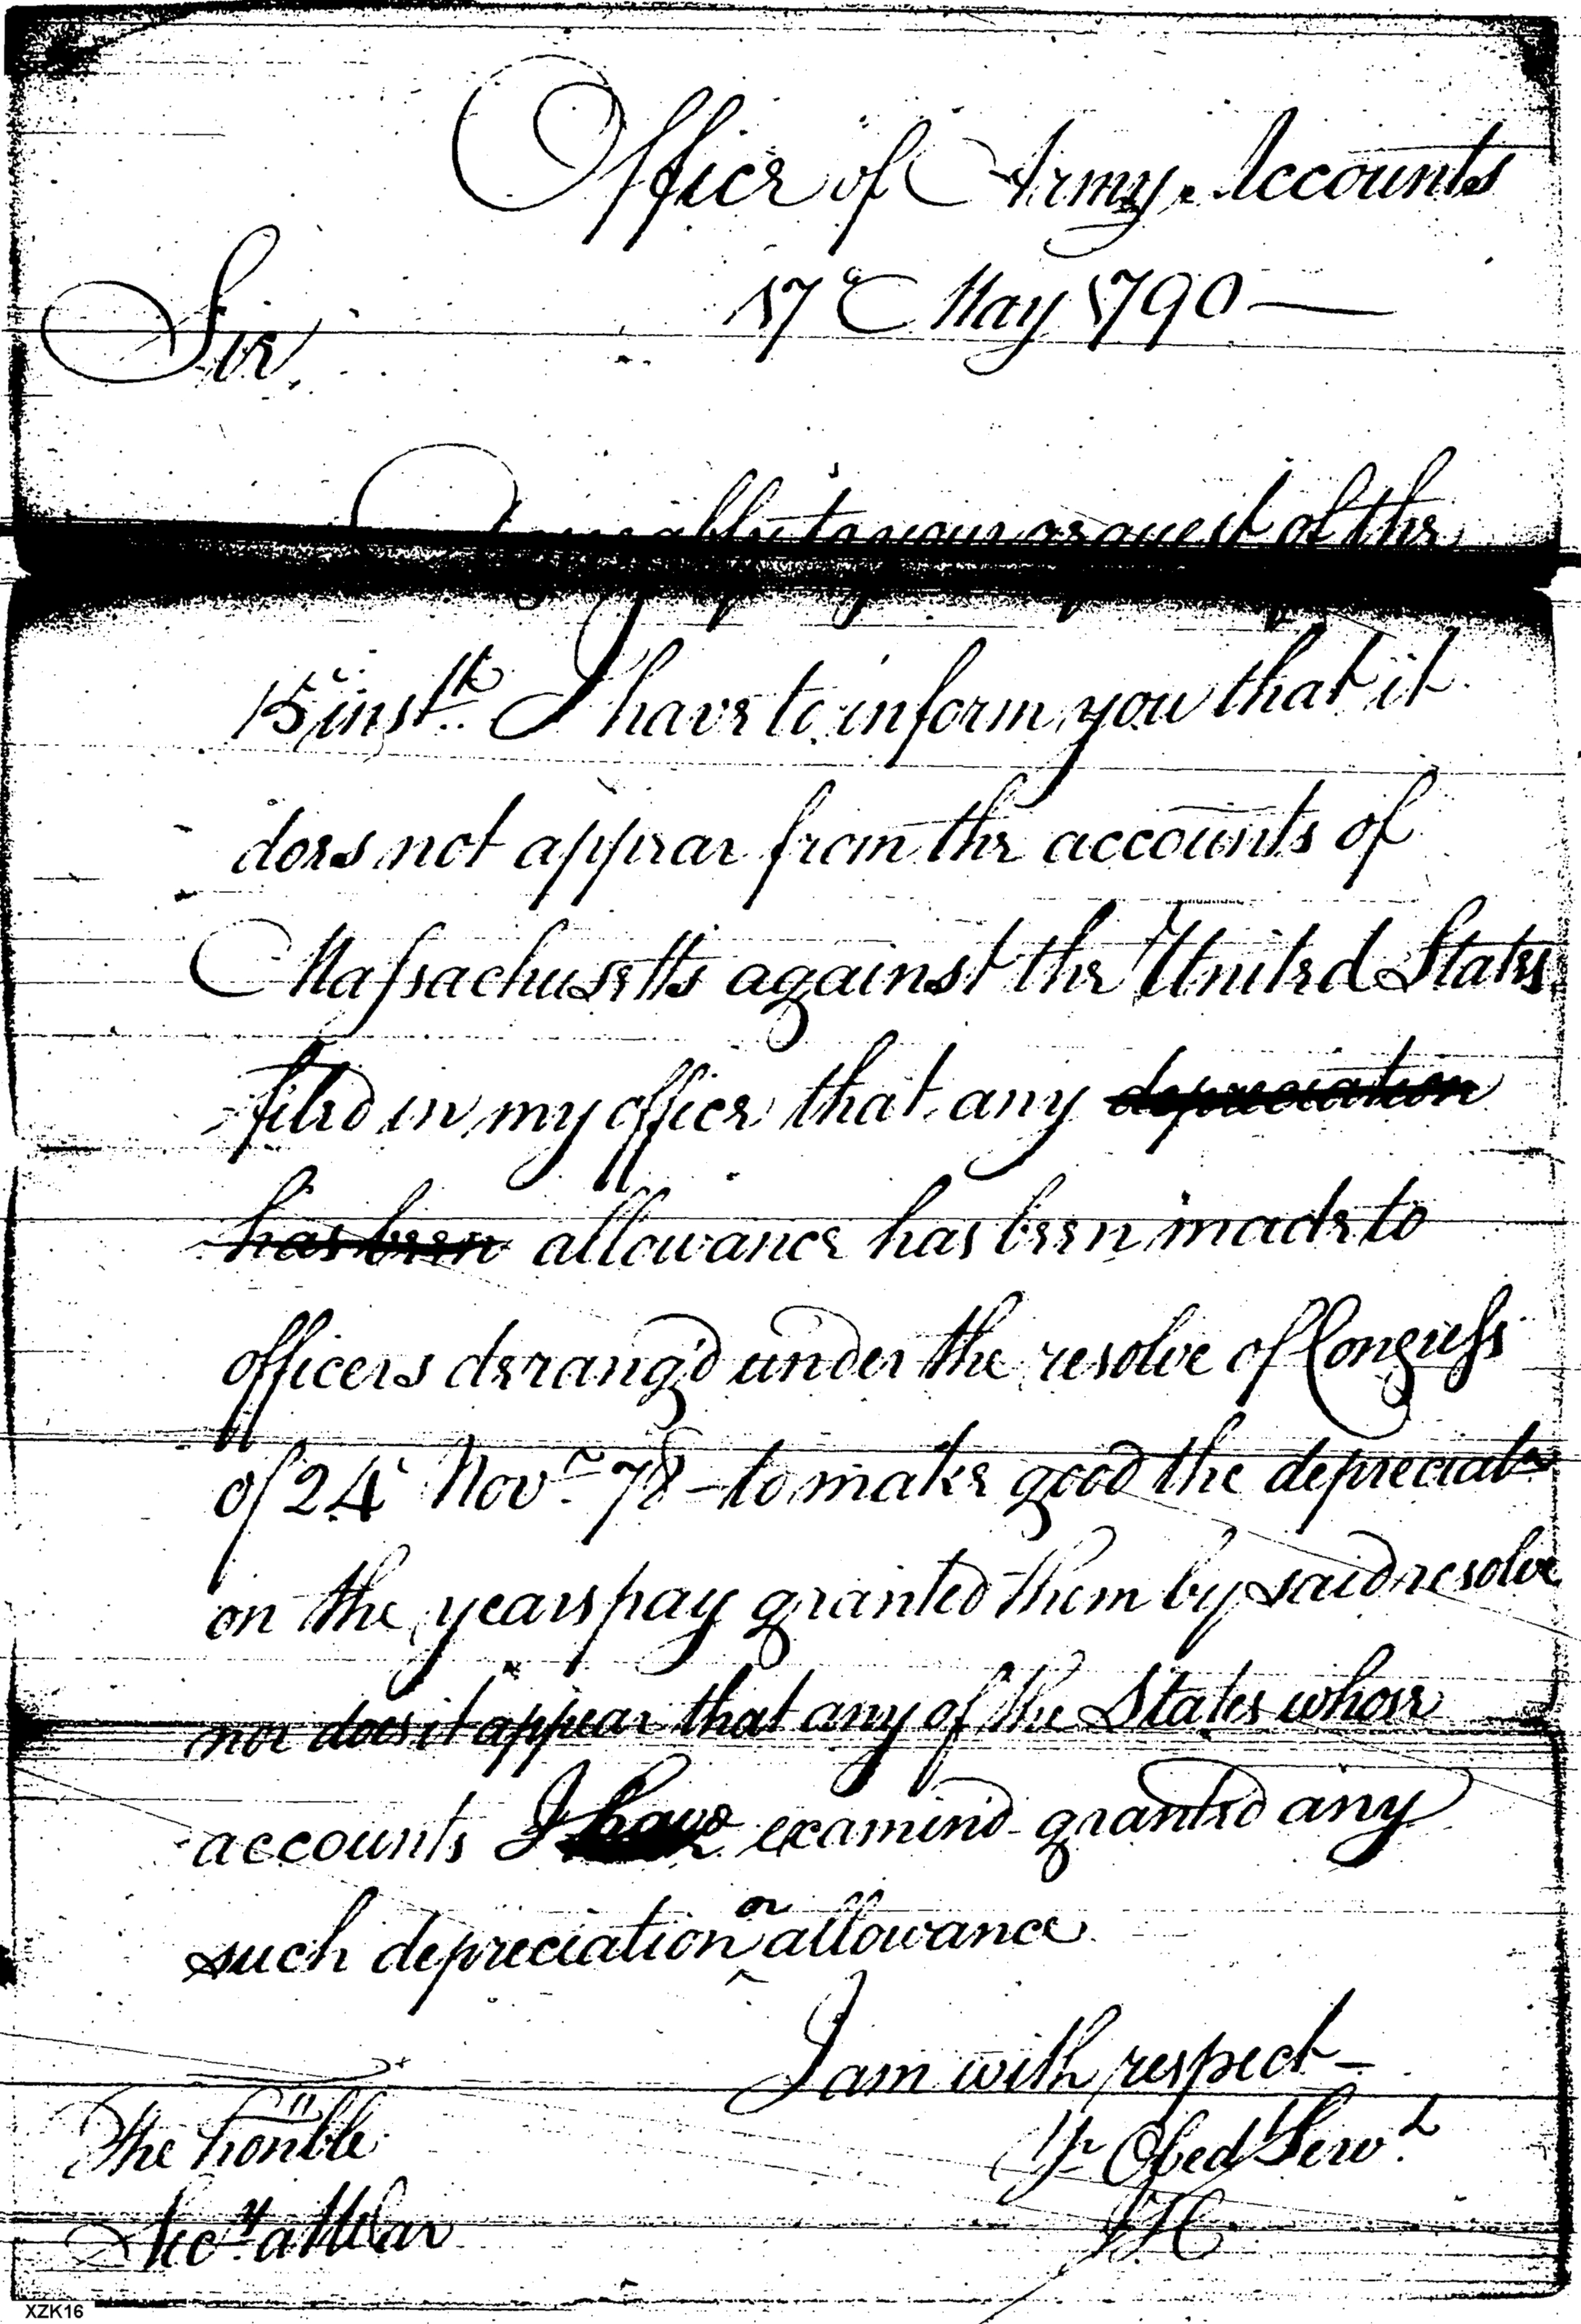 Office of Army Accounts
17th May 1790—
Sir
Agreeably to your request of the
15 instt. I have to inform you that it
does not appear from the accounts of
Massachusetts against the United States
filed in my office that any depreciation
has been allowance has been made to
officers derang'd under the resolve of Congress
of 24 Novr. 78 - to make good the depreciatn
on the years pay granted them by said resolve
nor does it appear that any of the States whose
accounts I have examind granted any
such depreciation or allowance
I am with respect—
Yr Obedt Servt.
The honble
Secy. at War
XZK16